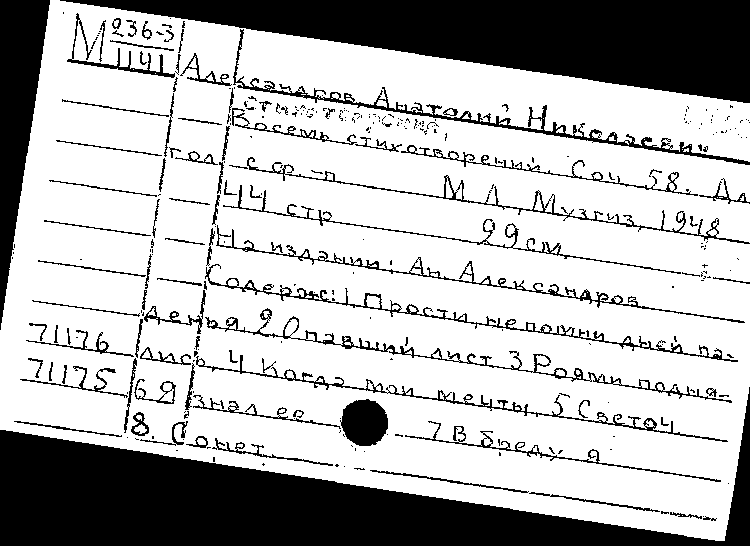 М 236-3
1141
Александров, Анатолий Николаевич
Восемь стихотворений. Соч 58. Дл
гол с ф.-п М Л, Музгиз, 1948
44 стр 29 см.
На издании: Ан. Александров
Содерж: 1 Прости, не помни дней па-
денья, 2 Опавший лист 3 Роями подня-
71176 лись, 4 Когда мои мечты, 5 Светоч
71175 6 Я знал ее. 7 В бреду я
8. Сонет.